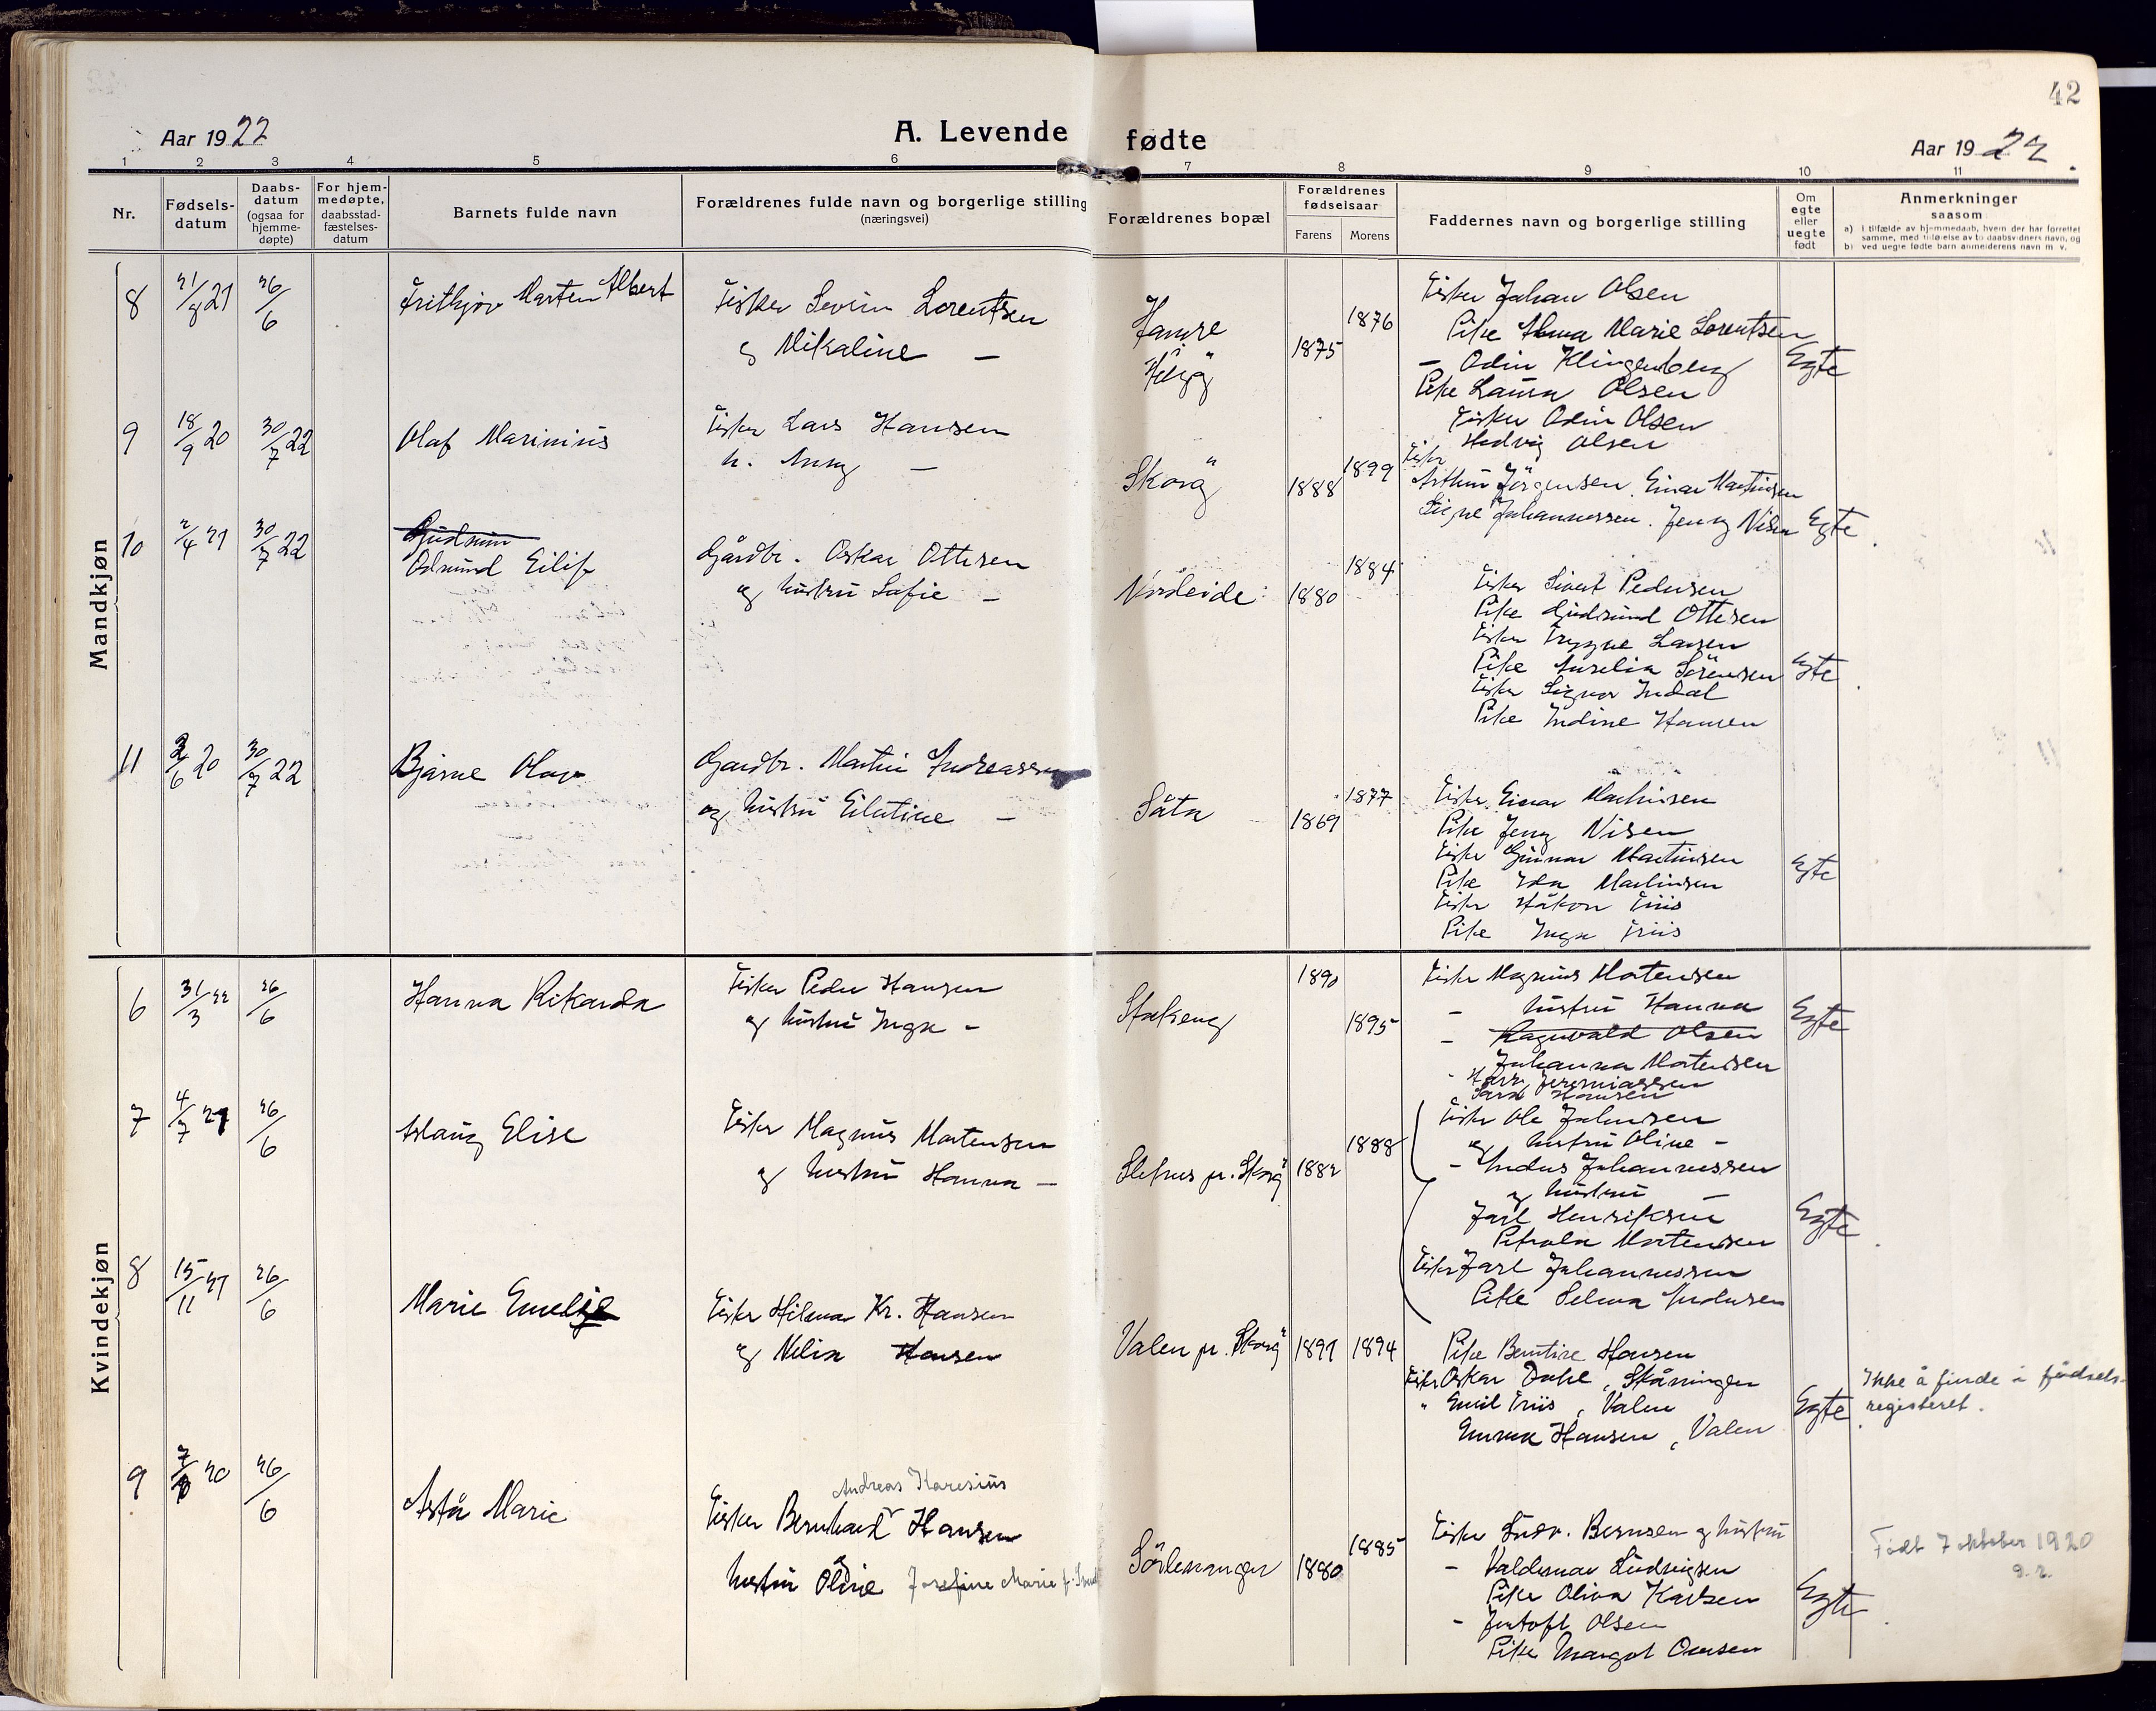 42
Aar 1922
A. Levende fødte
Aar 1922
1 2 3 4 5 6 7 8 9 10 11
Nr.
Fødsels-
datum
Daabs-
datum
(ogsaa for
hjemme-
døpte)
For hjem-
medøpte,
daabsstad-
fæstelses-
datum
Barnets fulde navn
Forældrenes fulde navn og borgerlige stilling
(næringsvei)
Forældrenes bopæl
Forældrenes
fødselsaar
Farens
Morens
Faddernes navn og borgerlige stilling
Om
egte
eller
uegte
født
Anmerkninger
saasom
a) i tilfælde av hjemmedaab, hvem der har forrettet
samme, med tilføielse av to daabsvidners navn, og
b) ved uegte fødte barn anmelderens navn m. v.
Mandkjøn
8
21/8 21
26/6
Frithjov Marten Albert
Fisker Sevrin Lorentsen
og Mikaline —
Hamre
Helgø
1875
1876
Fisker Johan Olsen
Pike Alma Marie Lorentsen
— Odin Klingenberg
Pike Laura Olsen
Fisker Odin Olsen
Hedvig Olsen
Egte
9
18/9 20
30/7 22
Olaf Marinius
Fisker Lars Hansen
h. Anny —
Skorø
1888
1899
Fisker
Arthur Jörgensen. Einar Martinsen
Signe Johannessen. Jenny Nisen
Egte
10
2/4 21
30/7 22
Gudrun
Odmund Eilif
Gårdbr. Oskar Ottesen
og hustru Sofie —
Nordeide
1880
1884
Fisker Sivert Pedersen
Pike Gudrund Ottesen
Fisker Trygve Larsen
Pike Aurelia Sörensen
Fisker Signor Indal
Pike Indine Hansen
Egte
11
2/6 20
30/7 22
Bjarne Olav
Gardbr. Martin Andreassen
og hustru Eilertine —
Såta
1869
1877
Fisker Einar Martinsen
Pike Jenny Nisen
Fisker Gunnar Martinsen
Pike Ida Martinsen
Fisker Håkon Friis
Pike Inga Friis
Egte
Kvindekjøn
6
31/3 22
26/6
Hanna Rikarda
Fisker Peder Hansen
og hustru Inga —
Stakeng
1890
1895
Fisker Magnus Mortensen
— hustru Hanna
— Ragnvald Olsen
Johanna Mortensen
Jeremiassen
Sara Hansen
Egte
7
4/7 21
26/6
Aslaug Elise
Fisker Magnus Mortensen
og hustru Hanna —
pr. Skorø
1882
1888
Fisker Ole Johnsen
og hustru Oline —
— Indus Johannessen
og hustru —
Jarl Henriksen
Petrola Mortensen
Fisker Jarl Johannessen
Pike Selma Andersen
Egte
8
15/11 21
26/6
Marie Emelie
Fisker Hilmar Kr. Hansen
og Nelia Hansen
Valen pr. Skorø
1891
1894
Pike Berntine Hansen
Fisker Oskar Dahl, Skåningen
" Emil Friis, Valen
Emma Hansen, Valen
Egte
Ikke å finde i fødsels-
registeret.
9
7/10 20
26/6
Asta Marie
Andreas Karesius
Fisker Bernhard Hansen
hustru Oline Josefine Marie f.
Sörlenangen
1880
1885
Fisker Ludv. Bernsen og hustru
— Valdemar Ludvigsen
Pike Oliva Karlsen
— Jentoft Olsen
Pike Margot Omsen
Egte
Født 7 oktober 1920